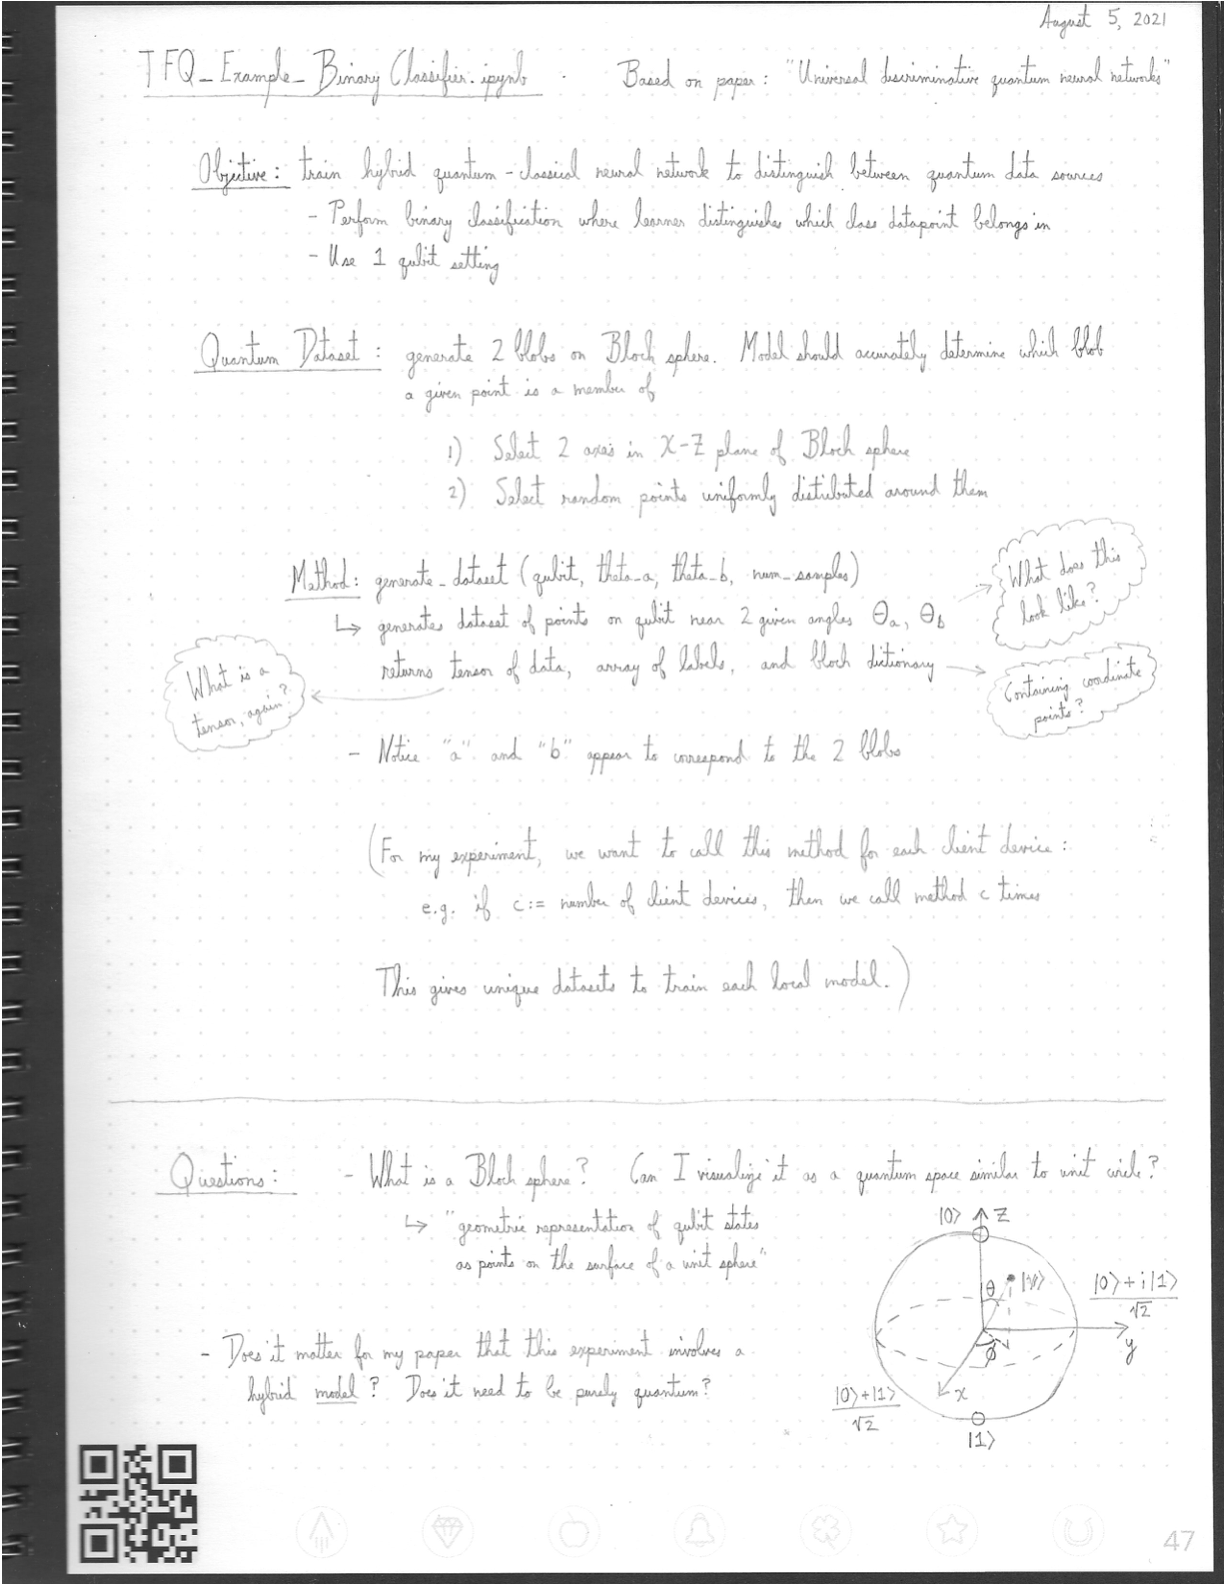 August 5, 2021
TFQ_Example_Binary Classifier.ipynb . Based on paper: "Universal discriminative quantum neural networks"
Objective: train hybrid quantum-classical neural network to distinguish between quantum data sources
- Perform binary classification where learner distinguishes which class datapoint belongs in
- Use 1 qubit setting
Quantum Dataset: generate 2 blobs on Bloch sphere. Model should accurately determine which blob
a given point is a member of
1) Select 2 axes in X-Z plane of Bloch sphere
2) Select random points uniformly distributed around them
Method: generate_dataset (qubit, theta_a, theta_b, num_samples)
↳ generates dataset of points on qubit near 2 given angles θa, θb
What does this
look like?
returns tensor of data, array of labels, and bloch dictionary
What is a
tensor, again?
Containing coordinate
points?
- Notice "a" and "b" appear to correspond to the 2 blobs
(For my experiment, we want to call this method for each client device:
e.g. if c := number of client devices, then we call method c times
This gives unique datasets to train each local model.)
Questions: - What is a Bloch sphere? Can I visualize it as a quantum space similar to unit circle?
↳ "geometric representation of qubit states
as points on the surface of a unit sphere"
|0⟩ Z
θ |ψ⟩
|0⟩+i|1⟩
√2
y
ϕ
x
|0⟩+|1⟩
√2
|1⟩
- Does it matter for my paper that this experiment involves a
hybrid model? Does it need to be purely quantum?
47